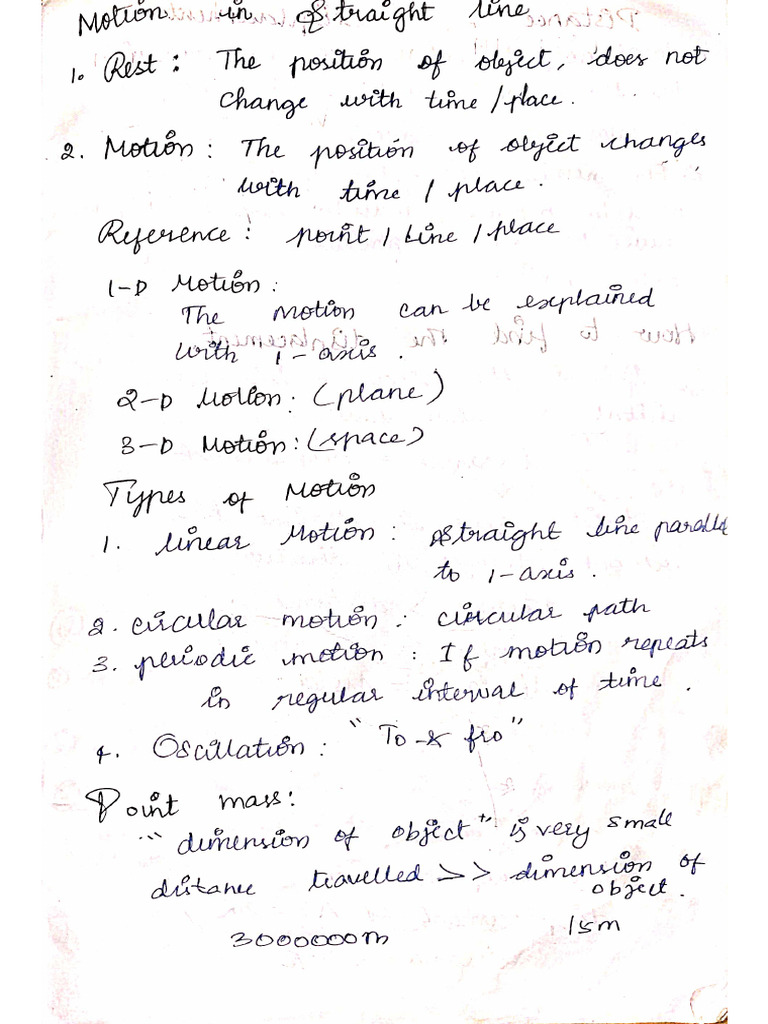 Motion in Straight line
1. Rest : The position of object, does not
change with time / place.
2. Motion : The position of object changes
with time / place.
Reference : point / Line / place
1-D Motion :
The Motion can be explained
with 1-axis.
2-D Motion : (plane)
3-D Motion : (space)
Types of Motion
1. Linear Motion : Straight line parallel
to 1-axis.
2. circular motion : circular path
3. periodic motion : If motion repeats
in regular interval of time.
4. Oscillation : "To & fro"
Point mass :
"dimension of object" is very small
distance travelled >> dimension of
object.
3000000m 15m